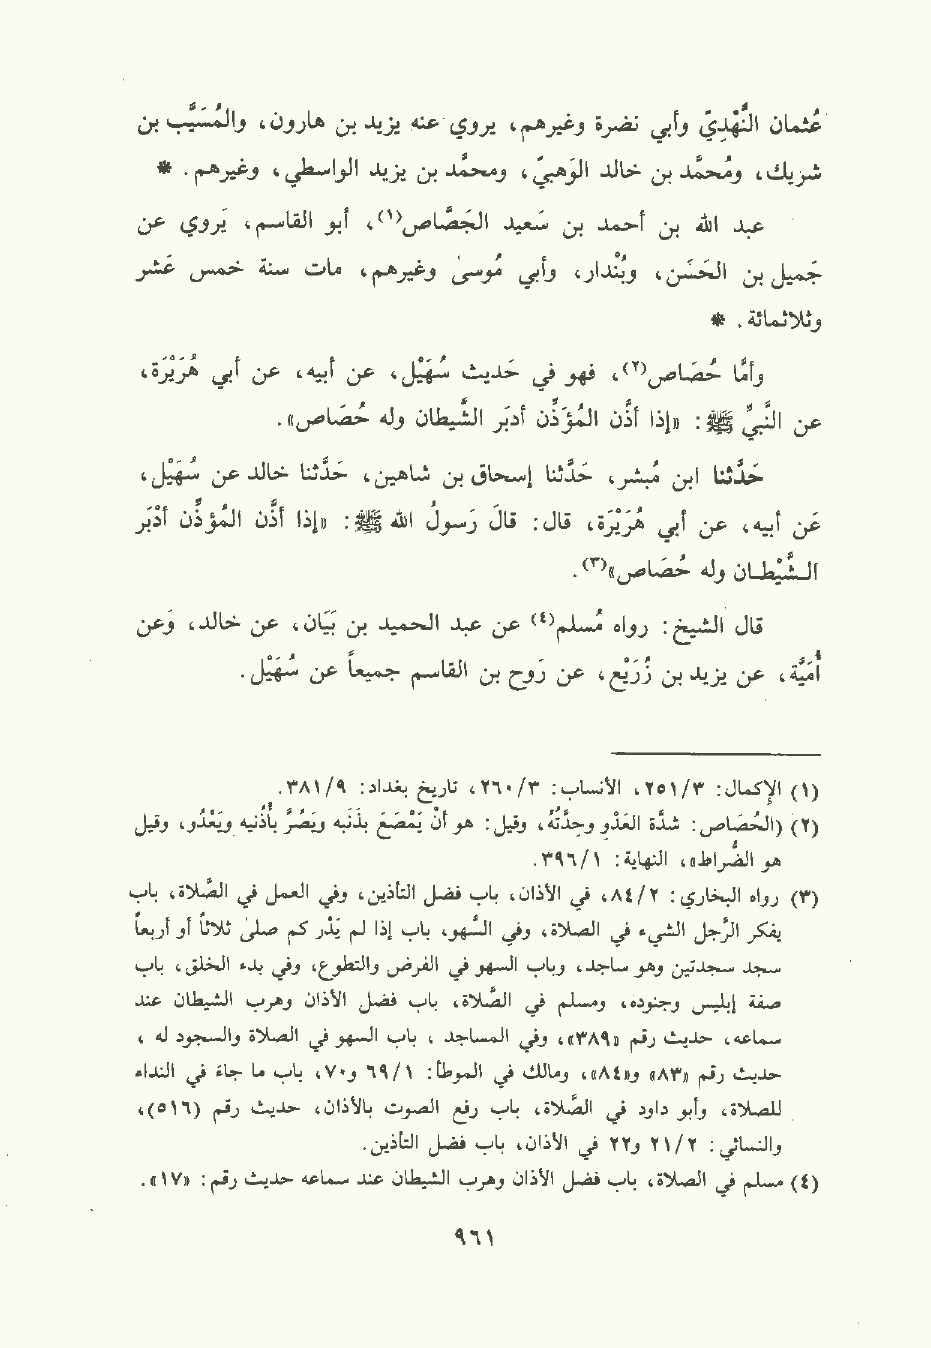 عُثمان النَّهْدِيّ وأبي نضرة وغيرهم، يروي عنه يزيد بن هارون، والمُسَيَّب بن
شريك، ومُحمَّد بن خالد الوَهْبيّ، ومحمَّد بن يزيد الواسطي، وغيرهم. *
عبد الله بن أحمد بن سَعيد الجَصَّاص(١)، أبو القاسم، يَروي عن
جَميل بن الحَسَن، وبُنْدار، وأبي مُوسىٰ وغيرهم، مات سنة خمس عَشر
وثلاثمائة. *
وأمَّا حُصَاص(٢)، فهو في حَديث سُهَيْل، عن أبيه، عن أبي هُرَيْرَة،
عن النَّبيِّ ﷺ: «إذا أذَّن المُؤذِّن أدبَر الشَّيطان وله حُصَاص».
حَدَّثنا ابن مُبشر، حَدَّثنا إسحاق بن شاهين، حَدَّثنا خالد عن سُهَيْل،
عَن أبيه، عن أبي هُرَيْرَة، قال: قالَ رَسولُ الله ﷺ: «إذا أذَّن المُؤذِّن أدْبَر
الشَّيْطان وله حُصَاص»(٣).
قال الشيخ: رواه مُسلم(٤) عن عبد الحميد بن بَيَان، عن خالد، وَعن
أُمَيَّة، عن يزيد بن زُرَيْع، عن رَوح بن القاسم جميعاً عن سُهَيْل.
(١) الإكمال: ٢٥١/٣، الأنساب: ٢٦٠/٣، تاريخ بغداد: ٣٨١/٩.
(٢) (الحُصَاص: شدة العَدْو وحِدَّتُهُ، وقيل: هو أنْ يَمْصَعَ بذَنَبه ويَصُرَّ بأُذنيه ويَعْدُو، وقيل
هو الضُّراط»، النهاية: ٣٩٦/١.
(٣) رواه البخاري: ٨٤/٢، في الأذان، باب فضل التأذين، وفي العمل في الصَّلاة، باب
يفكر الرَّجل الشيء في الصلاة، وفي السَّهو، باب إذا لم يَدْرِ كم صلىٰ ثلاثاً أو أربعاً
سجد سجدتين وهو ساجد، وباب السهو في الفرض والتطوع، وفي بدء الخلق، باب
صفة إبليس وجنوده، ومسلم في الصَّلاة، باب فضل الأذان وهرب الشيطان عند
سماعه، حديث رقم «٣٨٩»، وفي المساجد، باب السهو في الصلاة والسجود له،
حديث رقم «٨٣» و«٨٤»، ومالك في الموطأ: ٦٩/١ و٧٠، باب ما جاء في النداء
للصلاة، وأبو داود في الصَّلاة، باب رفع الصوت بالأذان، حديث رقم (٥١٦)،
والنسائي: ٢١/٢ و٢٢ في الأذان، باب فضل التأذين.
(٤) مسلم في الصلاة، باب فضل الأذان وهرب الشيطان عند سماعه حديث رقم: «١٧».
٩٦١